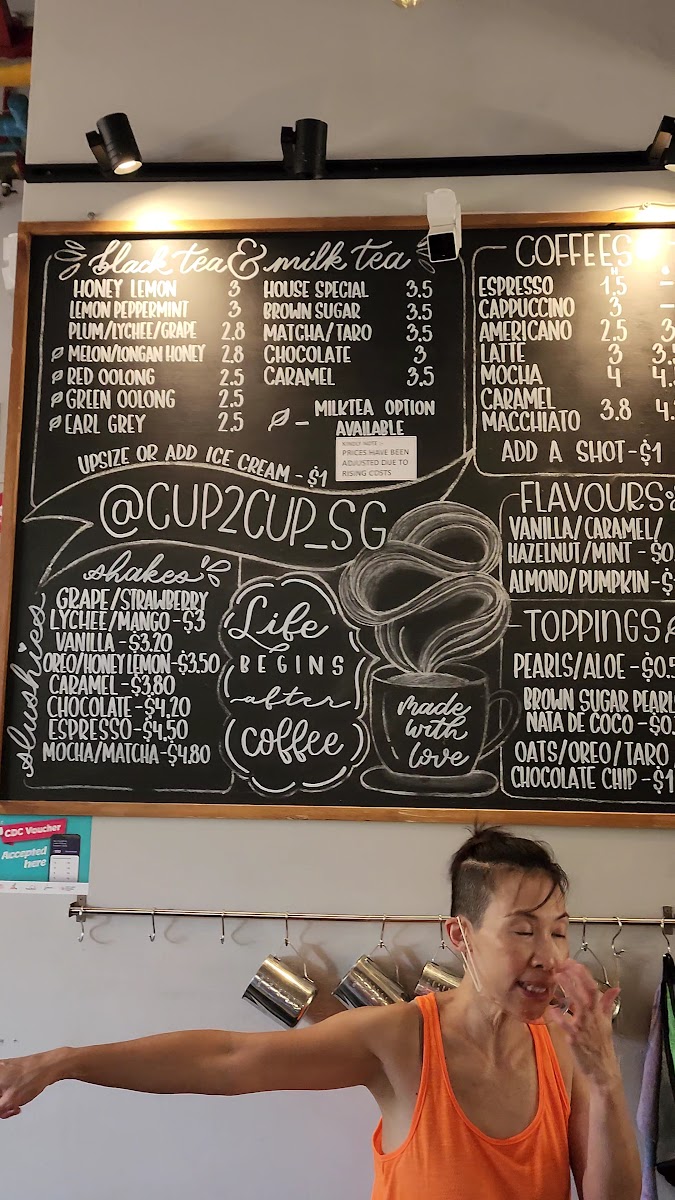 black tea & milk tea
HONEY LEMON 3
LEMON PEPPERMINT 3
PLUM/LYCHEE/GRAPE 2.8
MELON/LONGAN HONEY 2.8
RED OOLONG 2.5
GREEN OOLONG 2.5
EARL GREY 2.5
HOUSE SPECIAL 3.5
BROWN SUGAR 3.5
MATCHA/TARO 3.5
CHOCOLATE 3
CARAMEL 3.5
- MILKTEA OPTION
AVAILABLE
KINDLY NOTE :-
PRICES HAVE BEEN
ADJUSTED DUE TO
RISING COSTS
UPSIZE OR ADD ICE CREAM - $1
@CUP2CUP_SG
COFFEES
H
ESPRESSO 1.5 -
CAPPUCCINO 3 -
AMERICANO 2.5 3
LATTE 3 3.
MOCHA 4 4.
CARAMEL
MACCHIATO 3.8 4.
ADD A SHOT - $1
FLAVOURS
VANILLA/CARAMEL/
HAZELNUT/MINT - $0
ALMOND/PUMPKIN - $
TOPPINGS
PEARLS/ALOE - $0.5
BROWN SUGAR PEARL
NATA DE COCO - $0.
OATS/OREO/TARO
CHOCOLATE CHIP - $1
slushies
shakes
GRAPE/STRAWBERRY
LYCHEE/MANGO - $3
VANILLA - $3.20
OREO/HONEY LEMON - $3.50
CARAMEL - $3.80
CHOCOLATE - $4.20
ESPRESSO - $4.50
MOCHA/MATCHA - $4.80
Life
BEGINS
after
coffee
made
with
love
CDC Voucher
Accepted
here